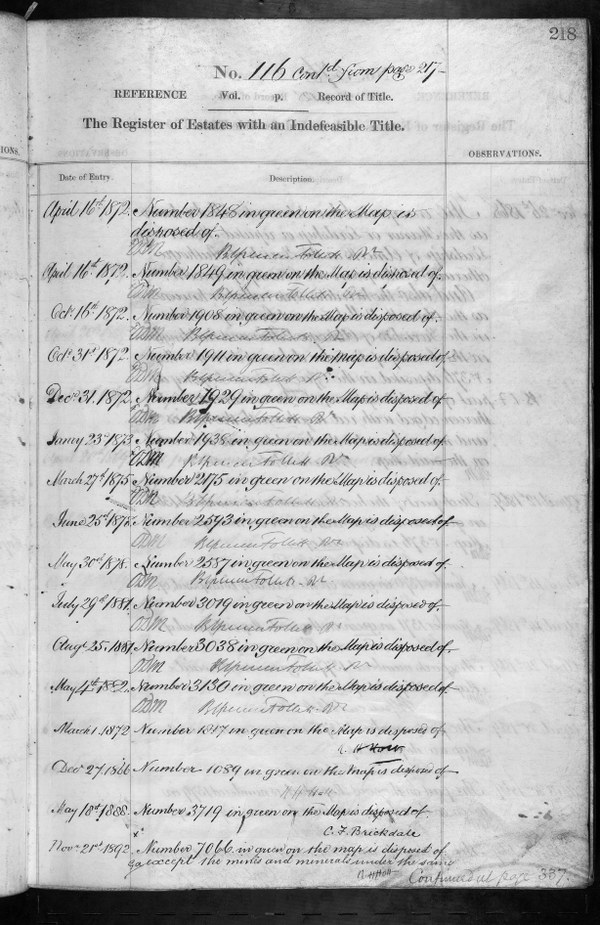 218
No. 116 contd from page 217
REFERENCE Vol. p. Record of Title.
The Register of Estates with an Indefeasible Title.
IONS.
OBSERVATIONS.
Date of Entry. Description.
April 16th 1872. Number 1848 in green on the Map is
disposed of.
ODM Brent Spencer Follett Rr
April 16th 1872. Number 1849 in green on the Map is disposed of.
ODM
Octr 16th 1872. Number 1908 in green on the Map is disposed of.
ODM
Octr 31st 1872. Number 1911 in green on the map is disposed of
ODM
Decr 31. 1872. Number 1929 in green on the Map is disposed of
ODM
Janry 23rd 1873 Number 1936 in green on the Map is disposed of
ODM
March 27th 1875 Number 2175 in green on the Map is disposed of.
ODM
June 25th Number 2593 in green on the Map is disposed of
ODM
May 30th 1878. Number 2587 in green on the Map is disposed of
ODM
July 29th 1881. Number 3019 in green on the Map is disposed of.
ODM
Augt 25. 1881. Number 3038 in green on the Map is disposed of
ODM
May 4th 1882. Number 3130 in green on the Map is disposed of
ODM
March 1 1872 Number 1817 in green on the Map is disposed of
R H Holt
Decr 27. 1866 Number 1089 in green on the map is disposed of
R H Holt
May 18th 1888. Number 3719 in green on the Map is disposed of.
C. F. Brickdale
Novr 21st 1892 Number 7066 in green on the map is disposed of
except the mines and minerals under the same
R H Holt
Continued at page 337.